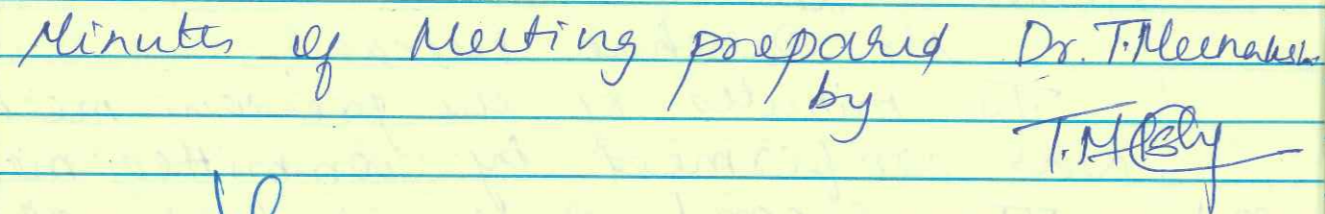 Minutes of Meeting prepared Dr. T. Meenakshi
by